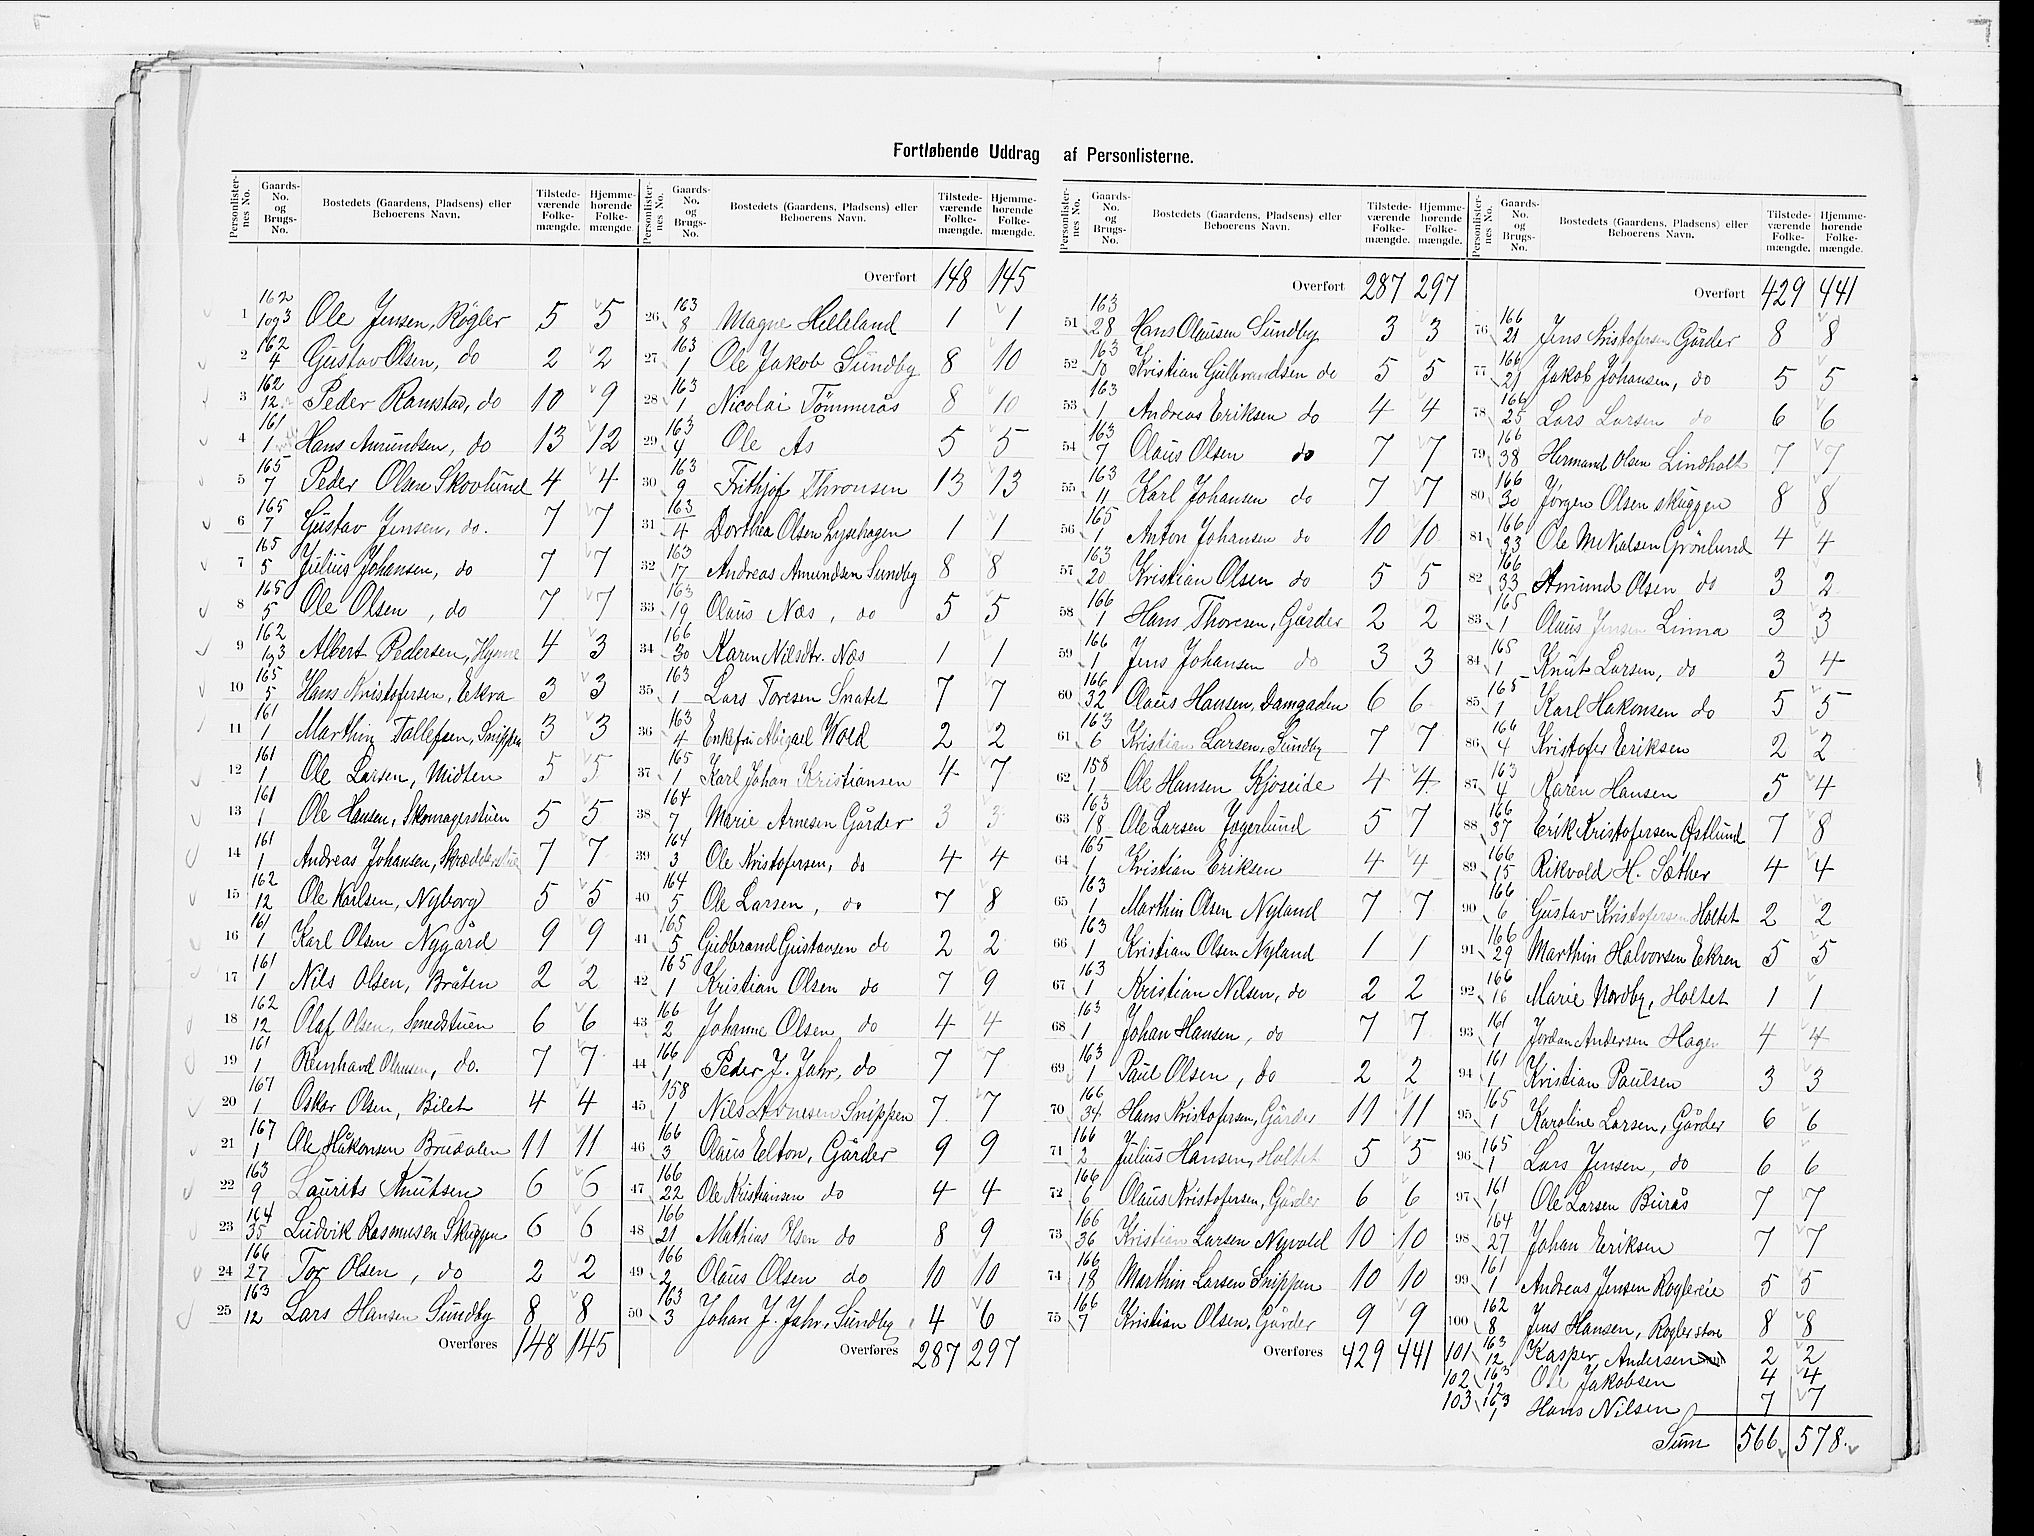 Fortløbende Uddrag af Personlisterne.
Personlister-nes No. Gaards-No. og Brugs-No. Bostedets (Gaardens, Pladsens) eller Beboerens Navn. Tilstede-værende Folke-mængde. Hjemme-hørende Folke-mængde.
1 162 1og3 Ole Jensen, Røgler 5 5
2 162 4 Gustav Olsen, do 2 2
3 162 12 Peder Ramstad, do 10 9
4 161 1 Hans Amundsen, do 13 12
5 165 7 Peder Olsen Skovlund 4 4
6 165 7 Gustav Jensen, do. 7 7
7 165 5 Julius Johansen, do 7 7
8 165 5 Ole Olsen, do 7 7
9 162 1og3 Albert Pedersen, 4 3
10 165 5 Hans Kristofersen, Ekra 3 3
11 161 1 Marthin Tollefsen, Snippen 3 3
12 161 1 Ole Larsen, Midten 5 5
13 161 1 Ole Hansen, Skomagerstuen 5 5
14 161 1 Andreas Johansen, 7 7
15 162 12 Ole Karlsen, Nyborg 5 5
16 161 1 Karl Olsen Nygård 9 9
17 161 1 Nils Olsen, Bråten 2 2
18 162 12 Olaf Olsen, Smedstuen 6 6
19 161 1 Reinhard Olausen, do. 7 7
20 167 1 Oskar Olsen, Bilet 4 4
21 167 1 Ole Håkonsen Brudalen 11 11
22 163 9 Laurits Knutsen 6 6
23 164 35 Ludvik Rasmusen Skuggen 6 6
24 166 27 Tor Olsen, do 2 2
25 163 12 Lars Hansen Sundby 8 8
Overføres 148 145
Personlister-nes No. Gaards-No. og Brugs-No. Bostedets (Gaardens, Pladsens) eller Beboerens Navn. Tilstede-værende Folke-mængde. Hjemme-hørende Folke-mængde.
Overført 148 145
26 163 8 Magne Helleland 1 1
27 163 1 Ole Jakob Sundby 8 10
28 163 1 Nicolai Tömmerås 8 10
29 163 4 Ole As 5 5
30 163 9 Frithjof Thronsen 13 13
31 163 4 Dorthea Olsen Lysehagen 1 1
32 163 17 Andreas Amundsen Sundby 8 8
33 163 19 Olaus Næs, do 5 5
34 166 30 Karen Nilsdtr. Næs 1 1
35 163 1 Lars Toresen Snatet 7 7
36 163 4 Enkefru Abigael Wold 2 2
37 165 1 Karl Johan Kristiansen 4 7
38 164 7 Marie Arnesen Gårder 3 3
39 164 3 Ole Kristofersen, do 4 4
40 164 5 Ole Larsen, do 7 8
41 165 5 Gudbrand Gustavsen do 2 2
42 165 1 Kristian Olsen do 7 9
43 166 2 Johanne Olsen, do 4 4
44 166 1 Peder J. Jahr, do 7 7
45 158 1 Nils Arnesen Snippen 7 7
46 166 3 Olaus Elton, Gårder 9 9
47 166 22 Ole Kristiansen do 4 4
48 166 21 Mathias Olsen do 8 9
49 166 2 Olaus Olsen do 10 10
50 163 3 Johan J. Jahr, Sundby 4 6
Overføres 287 297
Personlister-nes No. Gaards-No. og Brugs-No. Bostedets (Gaardens, Pladsens) eller Beboerens Navn. Tilstede-værende Folke-mængde. Hjemme-hørende Folke-mængde.
Overført 287 297
51 163 28 Hans Olausen Sundby 3 3
52 163 10 Kristian Gulbrandsen do 5 5
53 163 1 Andreas Eriksen do 4 4
54 163 7 Olaus Olsen do 7 7
55 163 11 Karl Johansen do 7 7
56 165 1 Anton Johansen do 10 10
57 163 20 Kristian Olsen do 5 5
58 166 1 Hans Thoresen, Gårder 2 2
59 166 1 Jens Johansen do 3 3
60 166 32 Olaus Hansen, Damgaden 6 6
61 163 6 Kristian Larsen, Sundby 7 7
62 158 1 Ole Hansen Kjoseide 4 4
63 163 18 Ole Larsen Jagerlund 5 7
64 165 1 Kristian Eriksen 4 4
65 163 1 Marthin Olsen Nyland 7 7
66 163 1 Kristian Olsen Nyland 1 1
67 163 1 Kristian Nilsen, do 2 2
68 163 1 Johan Hansen, do 7 7
69 163 1 Paul Olsen, do 2 2
70 166 34 Hans Kristofersen, Gårder 11 11
71 166 2 Julius Hansen, Holtet 5 5
72 166 6 Olaus Kristofersen, Gårder 6 6
73 166 36 Kristian Larsen Nyvold 10 10
74 166 18 Marthin Larsen Snippen 10 10
75 166 7 Kristian Olsen, Gårder 9 9
Overføres 429 441
Personlister-nes No. Gaards-No. og Brugs-No. Bostedets (Gaardens, Pladsens) eller Beboerens Navn. Tilstede-værende Folke-mængde. Hjemme-hørende Folke-mængde.
Overført 429 441
76 166 21 Jens Kristofersen Gårder 8 8
77 166 21 Jakob Johansen, do 5 5
78 166 25 Lars Larsen do 6 6
79 166 38 Hermand Olsen Lindholt 7 7
80 166 30 Jørgen Olsen skuggen 8 8
81 166 23 Ole Mikalsen Grönlund 4 4
82 166 33 Amund Olsen do 3 2
83 165 1 Olaus Jensen Linna 3 3
84 165 1 Knut Larsen, do 3 4
85 165 1 Karl Hakonsen do 5 5
86 166 4 Kristofer Eriksen 2 2
87 163 4 Karen Hansen 5 4
88 166 37 Erik Kristofersen Østlund 7 8
89 166 15 Rikvold H. Sæther 4 4
90 166 6 Gustav Kristofersen Holtet 2 2
91 166 29 Marthin Halvorsen Ekren 5 5
92 166 16 Marie Nordby, Holtet 1 1
93 161 1 Jordan Andersen Hagen 4 4
94 161 1 Kristian Paulsen 3 3
95 165 1 Karoline Larsen, Gårder 6 6
96 165 1 Lars Jensen, do 6 6
97 161 1 Ole Larsen Burås 7 7
98 164 27 Johan Eriksen 7 7
99 161 1 Andreas Jensen Roglereie 5 5
100 162 8 Jens Hansen, Rogler store 8 8
101 163 12 Kasper Andersen 2 2
102 163 12 Ole Jakobsen 4 4
103 163 1 Hans Nilsen 7 7
Sum 566 578